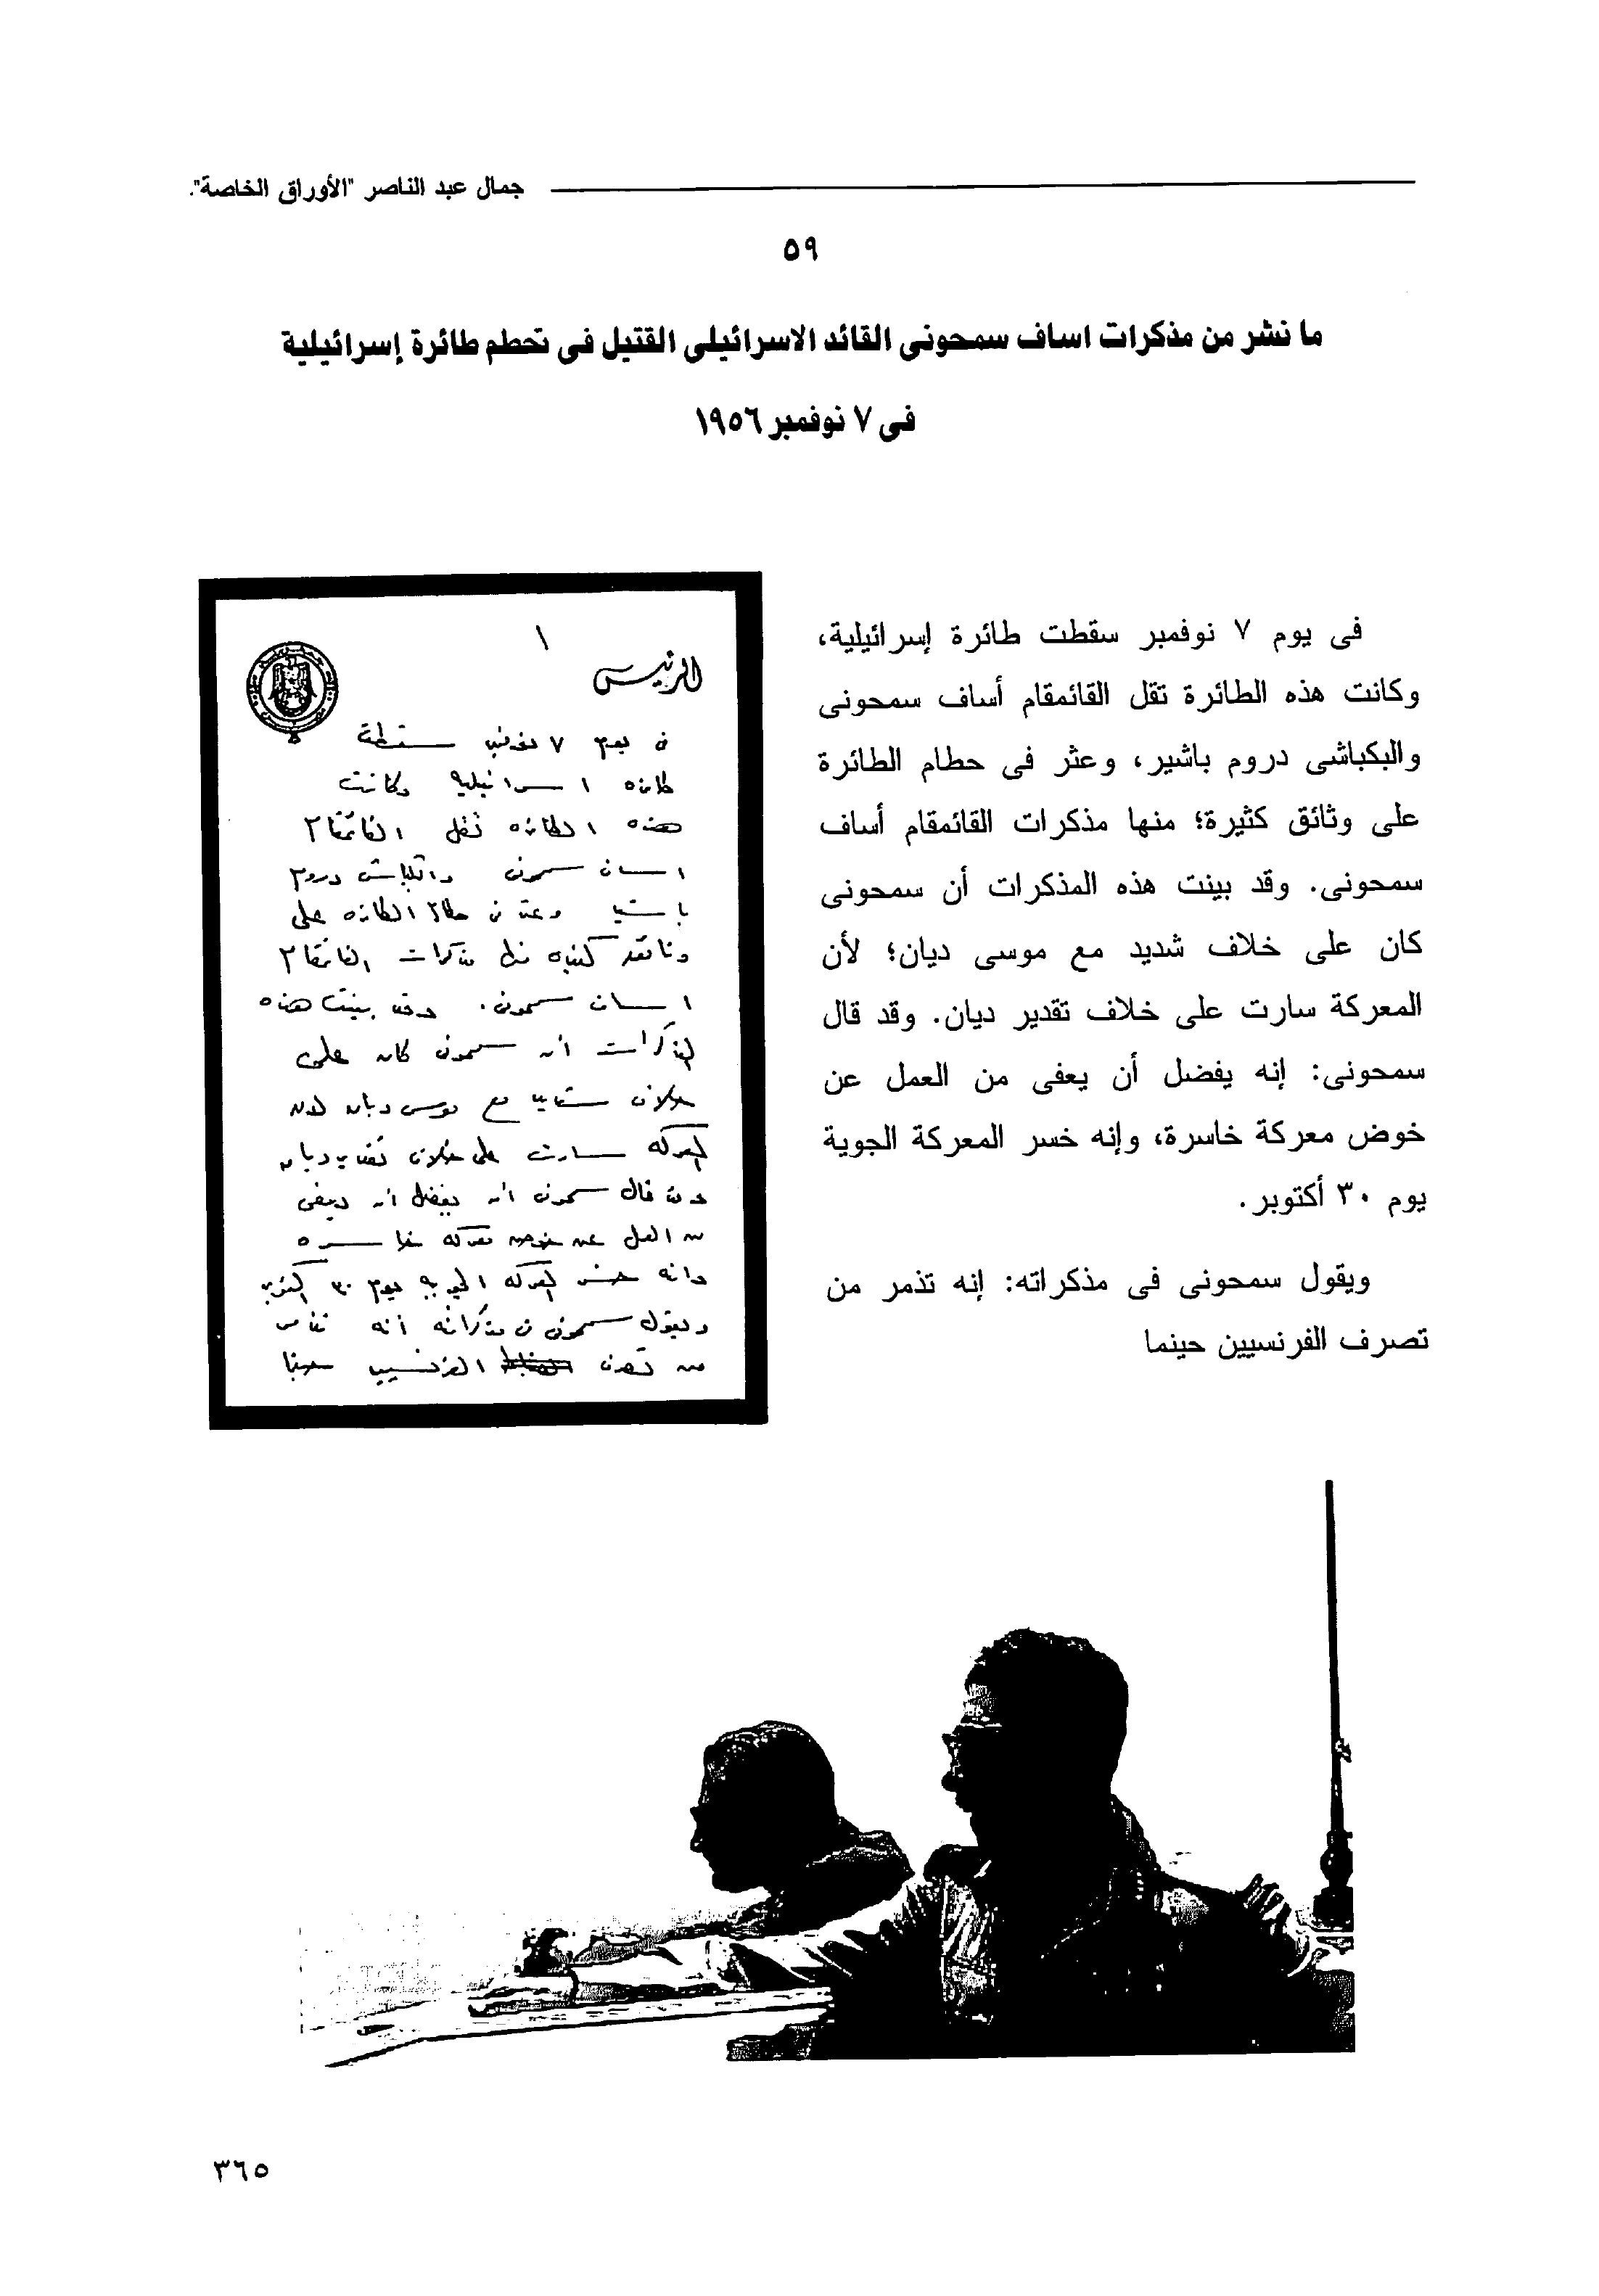 جمال عبد الناصر "الأوراق الخاصة".
٥٩
ما نشر من مذكرات اساف سمحونى القائد الاسرائيلى القتيل فى تحطم طائرة إسرائيلية
فى ٧ نوفمبر ١٩٥٦
فى يوم ٧ نوفمبر سقطت طائرة إسرائيلية،
وكانت هذه الطائرة تقل القائمقام أساف سمحونى
والبكباشى دروم باشير، وعثر فى حطام الطائرة
على وثائق كثيرة؛ منها مذكرات القائمقام أساف
سمحونى. وقد بينت هذه المذكرات أن سمحونى
كان على خلاف شديد مع موسى ديان؛ لأن
المعركة سارت على خلاف تقدير ديان. وقد قال
سمحونى: إنه يفضل أن يعفى من العمل عن
خوض معركة خاسرة، وإنه خسر المعركة الجوية
يوم ٣٠ أكتوبر.
ويقول سمحونى فى مذكراته: إنه تذمر من
تصرف الفرنسيين حينما
١
الرئيس
فى يوم ٧ نوفمبر سقطت
طائره اسرائيلية وكانت
هذه الطائره تقل القائمقام
اساف سمحونى والبكباشى دروم
باشير وعثر فى حطام الطائره على
وثائق كثيره منها مذكرات القائمقام
اساف سمحونى. وقد بينت هذه
المذكرات أن سمحونى كان على
خلاف شديد مع موسى ديان لان
المعركه سارت على خلاف تقدير ديان
وقد قال سمحونى أنه يفضل أن يعفى
من العمل عن خوض معركه خاسره
وانه خسر المعركه الجويه يوم ٣٠ اكتوبر
ويقول سمحونى فى مذكراته أنه
من تصرف الفرنسيين حينما
٣٦٥